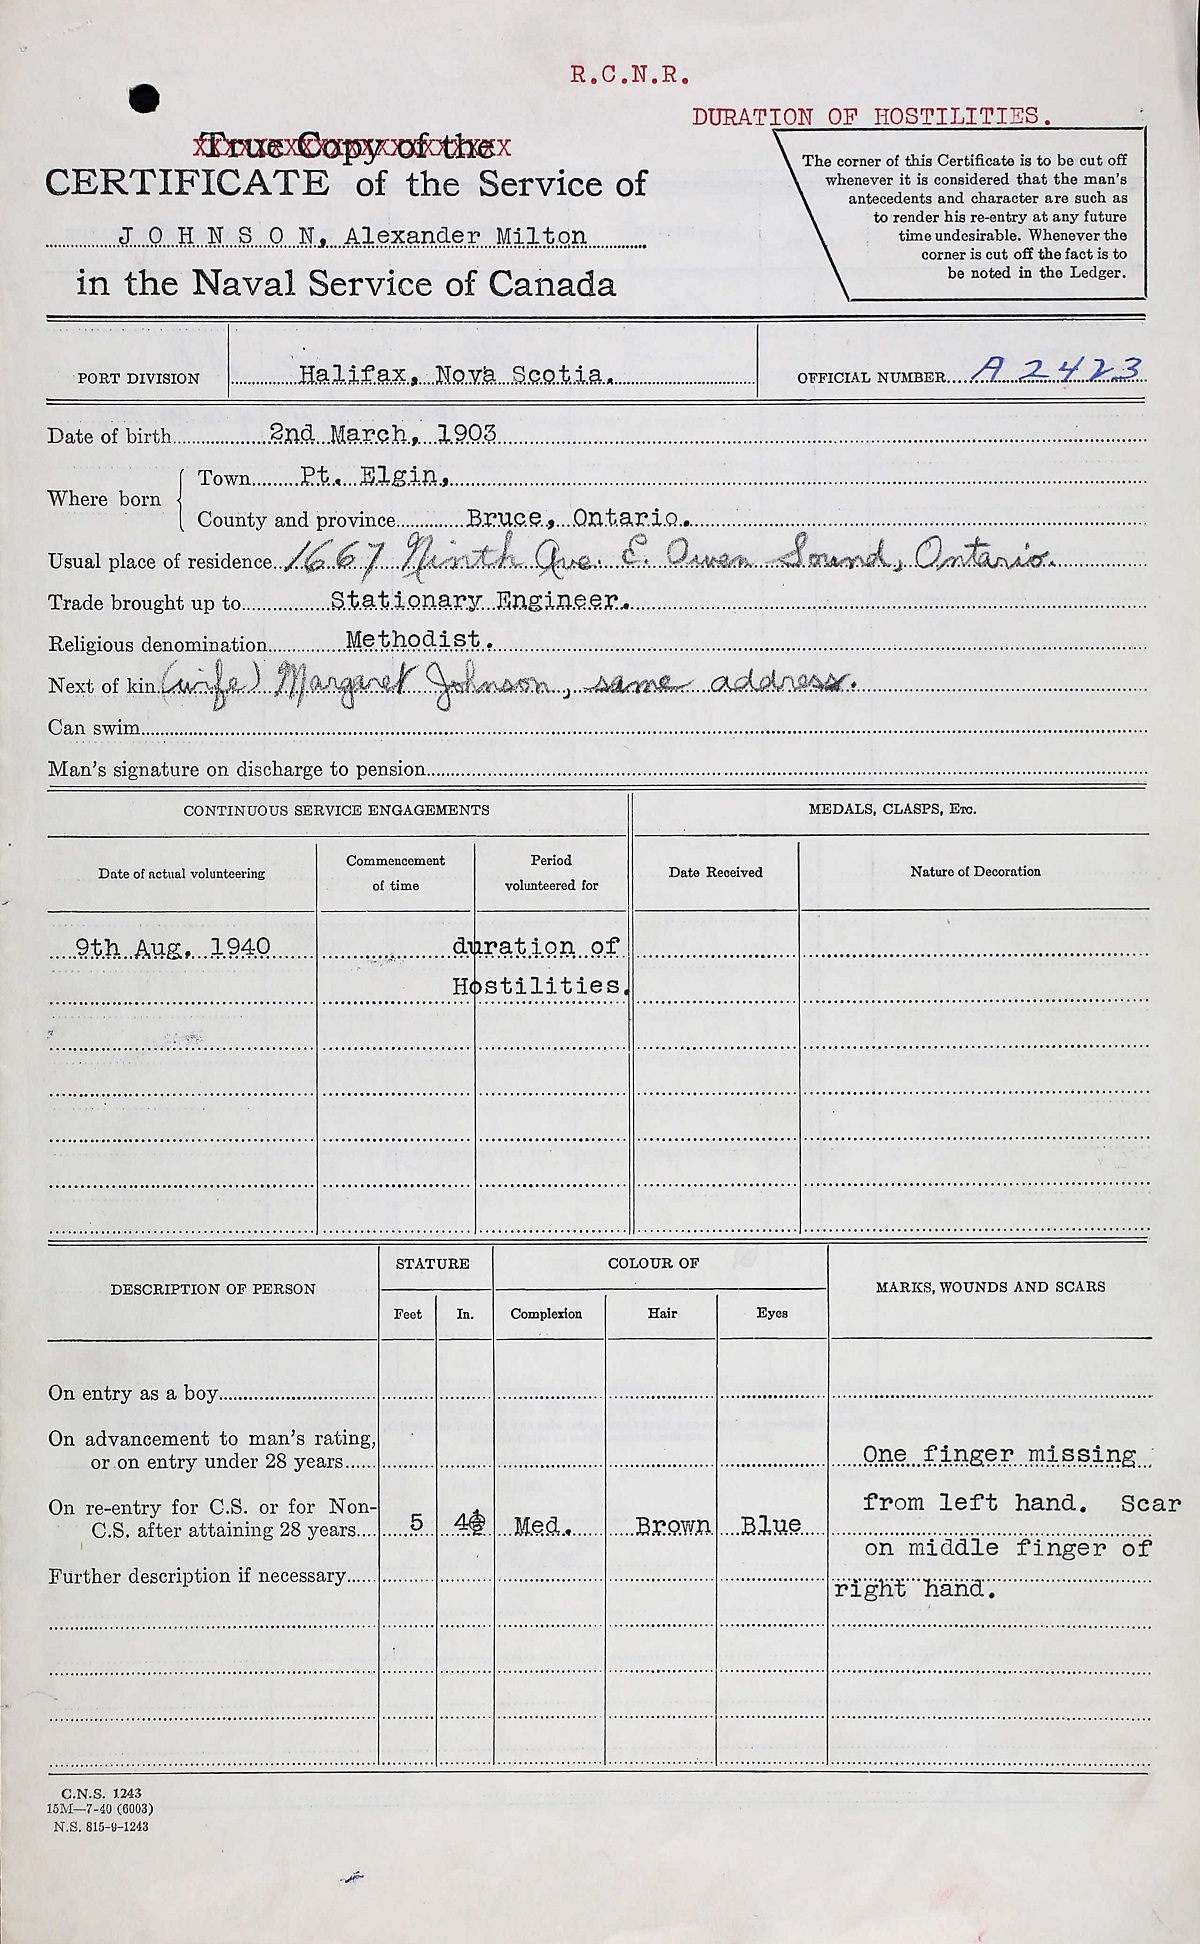 R.C.N.R.
DURATION OF HOSTILITIES.
True Copy of the
CERTIFICATE of the Service of
J O H N S O N, Alexander Milton
in the Naval Service of Canada
The corner of this Certificate is to be cut off
whenever it is considered that the man's
antecedents and character are such as
to render his re-entry at any future
time undesirable. Whenever the
corner is cut off the fact is to
be noted in the Ledger.
PORT DIVISION Halifax, Nova Scotia. OFFICIAL NUMBER A 2423
Date of birth 2nd March, 1903
Where born
Town Pt. Elgin,
County and province Bruce, Ontario.
Usual place of residence 1667 Ninth Ave. E. Owen Sound, Ontario.
Trade brought up to Stationary Engineer.
Religious denomination Methodist.
Next of kin (wife) Margaret Johnson, same address.
Can swim
Man's signature on discharge to pension
CONTINUOUS SERVICE ENGAGEMENTS MEDALS, CLASPS, ETC.
Date of actual volunteering Commencement of time Period volunteered for Date Received Nature of Decoration
9th Aug. 1940 duration of
Hostilities.
DESCRIPTION OF PERSON STATURE COLOUR OF MARKS, WOUNDS AND SCARS
Feet In. Complexion Hair Eyes
On entry as a boy
On advancement to man's rating,
or on entry under 28 years
One finger missing
On re-entry for C.S. or for Non-
from left hand. Scar
C.S. after attaining 28 years 5 4 Med. Brown Blue
on middle finger of
Further description if necessary
right hand.
C.N.S. 1243
15M—7-40 (6003)
N.S. 815-9-1243